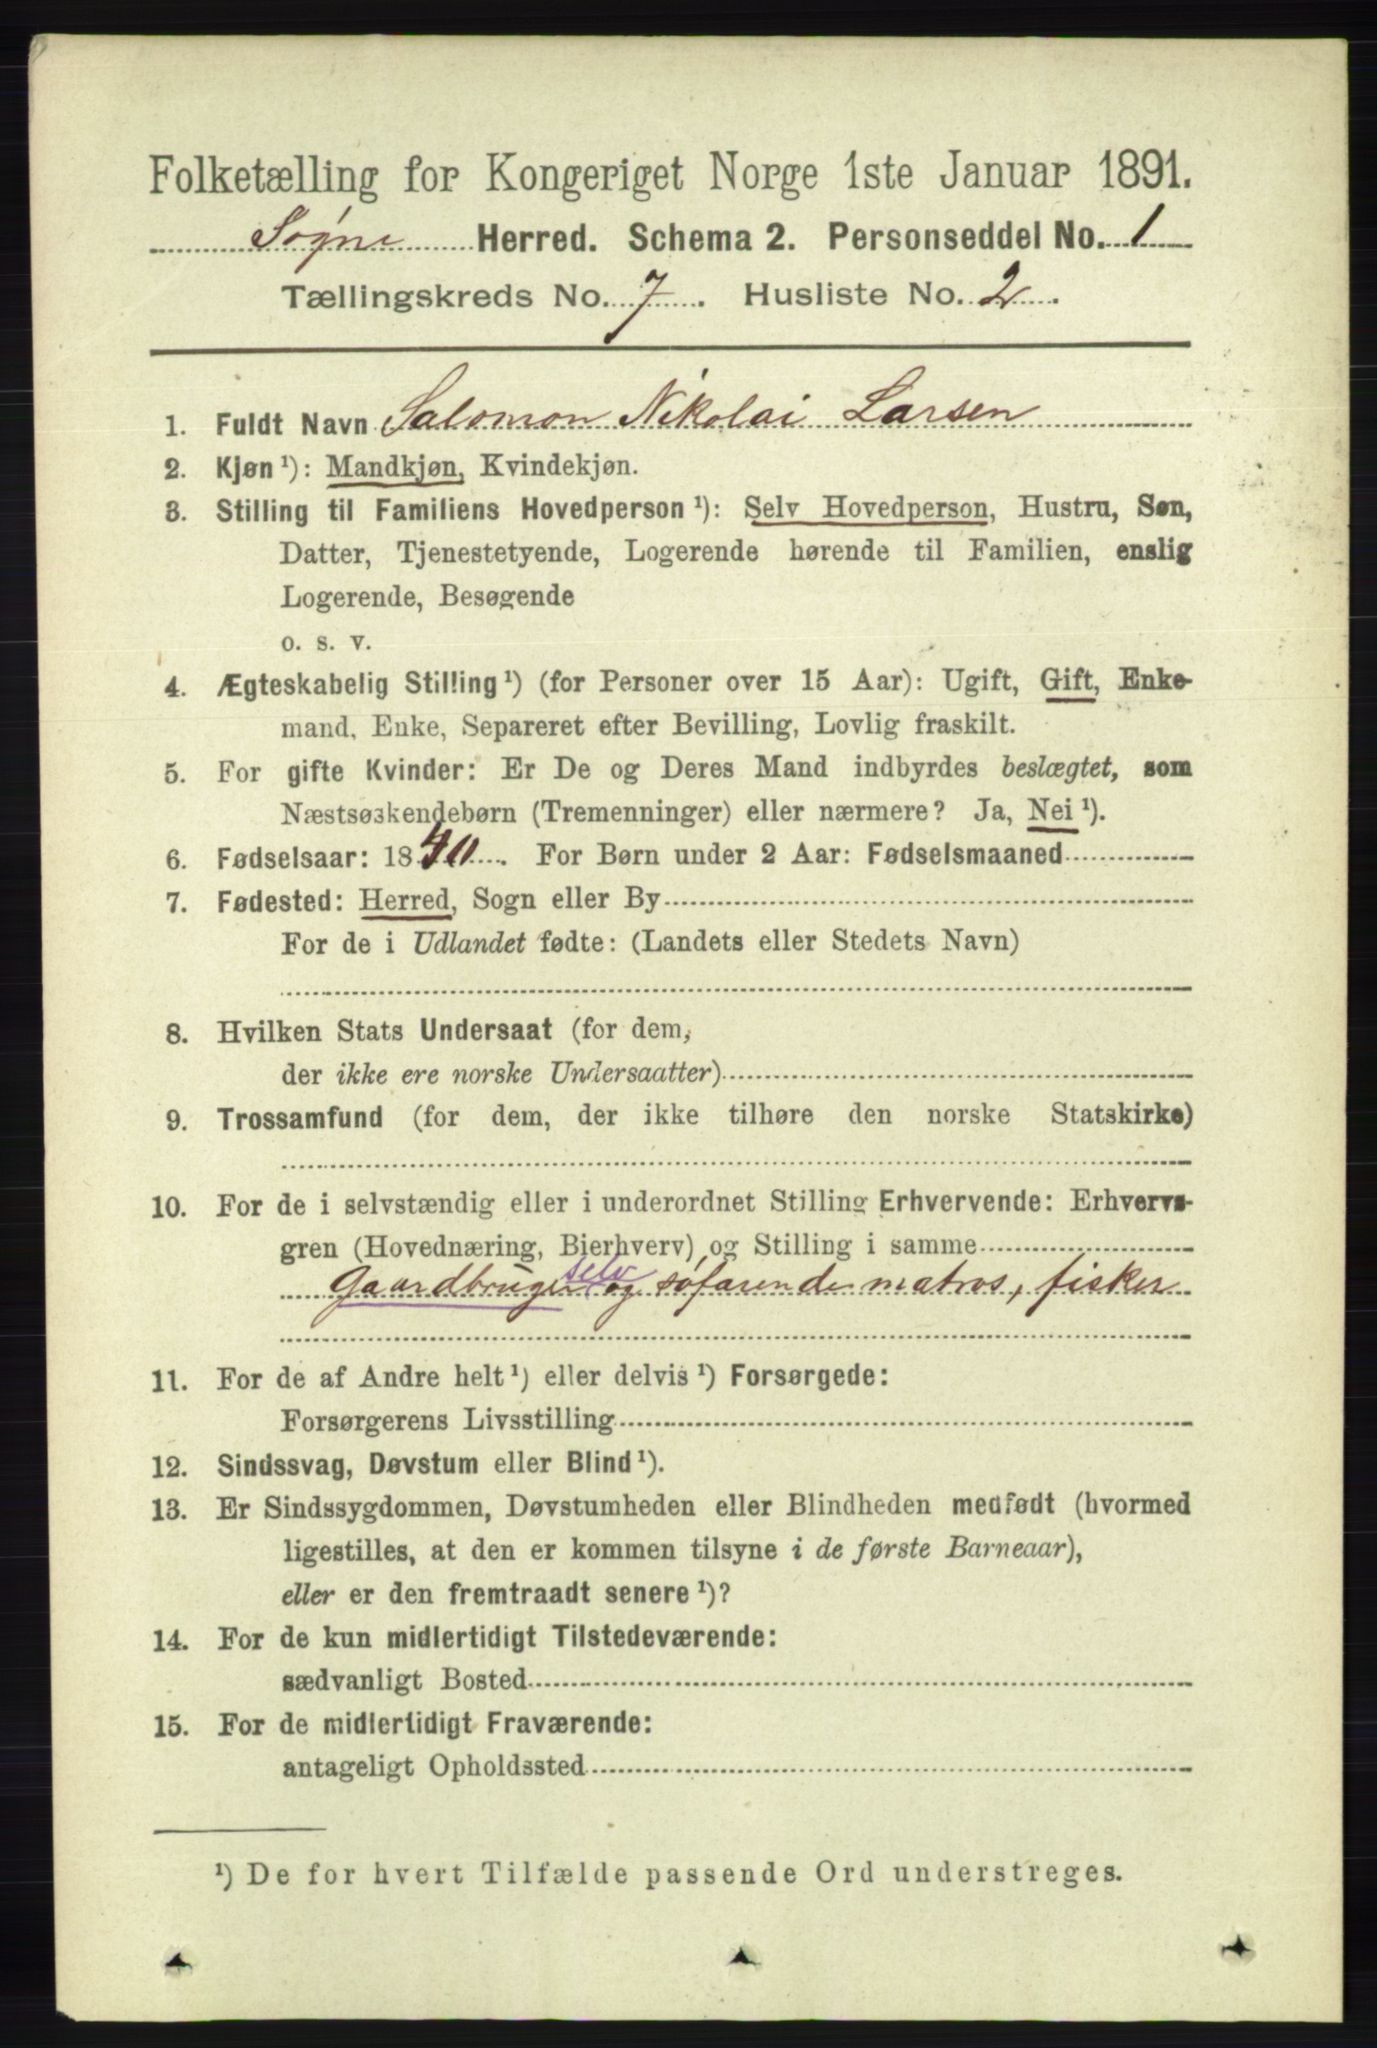 Folketælling for Kongeriget Norge 1ste Januar 1891.
Søgne Herred. Schema 2. Personseddel No. 1
Tællingskreds No. 7. Husliste No. 2.
1. Fuldt Navn Salomon Nikolai Larsen
2. Kjøn ¹): Mandkjøn, Kvindekjøn.
3. Stilling til Familiens Hovedperson ¹): Selv Hovedperson, Hustru, Søn,
Datter, Tjenestetyende, Logerende hørende til Familien, enslig
Logerende, Besøgende
o. s. v.
4. Ægteskabelig Stilling ¹) (for Personer over 15 Aar): Ugift, Gift, Enke-
mand, Enke, Separeret efter Bevilling, Lovlig fraskilt.
5. For gifte Kvinder: Er De og Deres Mand indbyrdes beslægtet, som
Næstsøskendebørn (Tremenninger) eller nærmere? Ja, Nei ¹).
6. Fødselsaar: 1840. For Børn under 2 Aar: Fødselsmaaned
7. Fødested: Herred, Sogn eller By
For de i Udlandet fødte: (Landets eller Stedets Navn)
8. Hvilken Stats Undersaat (for dem,
der ikke ere norske Undersaatter)
9. Trossamfund (for dem, der ikke tilhøre den norske Statskirke)
10. For de i selvstændig eller i underordnet Stilling Erhvervende: Erhvervs-
gren (Hovednæring, Bierhverv) og Stilling i samme
Gaardbruger selv og søfarende matros, fisker
11. For de af Andre helt ¹) eller delvis ¹) Forsørgede:
Forsørgerens Livsstilling
12. Sindssvag, Døvstum eller Blind ¹).
13. Er Sindssygdommen, Døvstumheden eller Blindheden medfødt (hvormed
ligestilles, at den er kommen tilsyne i de første Barneaar),
eller er den fremtraadt senere ¹)?
14. For de kun midlertidigt Tilstedeværende:
sædvanligt Bosted
15. For de midlertidigt Fraværende:
antageligt Opholdssted
¹) De for hvert Tilfælde passende Ord understreges.